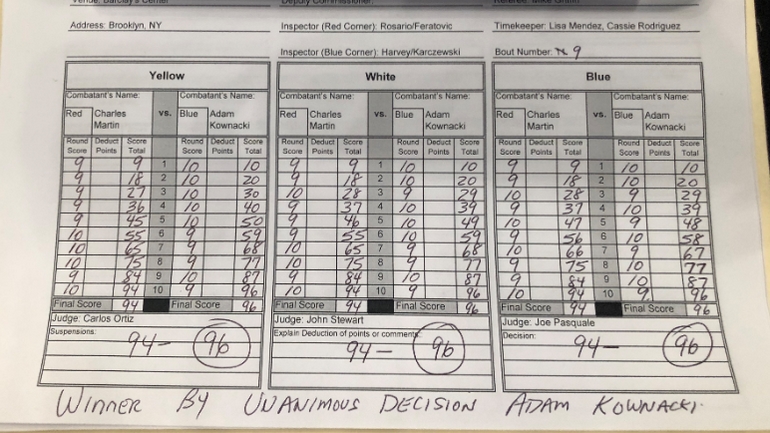 Address: Brooklyn, NY Inspector (Red Corner): Rosario/Feratovic Timekeeper: Lisa Mendez, Cassie Rodriguez
Inspector (Blue Corner): Harvey/Karczewski Bout Number: 9
Yellow White Blue
Combatant's Name: Combatant's Name: Combatant's Name: Combatant's Name: Combatant's Name: Combatant's Name:
Red Charles vs. Blue Adam Red Charles vs. Blue Adam Red Charles vs. Blue Adam
Martin Kownacki Martin Kownacki Martin Kownacki
Round Deduct Score Round Deduct Score Round Deduct Score Round Deduct Score Round Deduct Score Round Deduct Score
Score Points Total Score Points Total Score Points Total Score Points Total Score Points Total Score Points Total
9 9 1 10 10 9 9 1 10 10 9 9 1 10 10
9 18 2 10 20 9 18 2 10 20 9 18 2 10 20
9 27 3 10 30 10 28 3 9 29 10 28 3 9 29
9 36 4 10 40 9 37 4 10 39 9 37 4 10 39
9 45 5 10 50 9 46 5 10 49 10 47 5 9 48
10 55 6 9 59 9 55 6 10 59 9 56 6 10 58
10 65 7 9 68 10 65 7 9 68 10 66 7 9 67
10 75 8 9 77 10 75 8 9 77 9 75 8 10 77
9 84 9 10 87 9 84 9 10 87 9 84 9 10 87
10 94 10 9 96 10 94 10 9 96 10 94 10 9 96
Final Score 94 Final Score 96 Final Score 94 Final Score 96 Final Score 94 Final Score 96
Judge: Carlos Ortiz Judge: John Stewart Judge: Joe Pasquale
Suspensions: Explain Deduction of points or comments: Decision:
94 - 96 94 - 96 94 - 96
WINNER BY UNANIMOUS DECISION ADAM KOWNACKI.